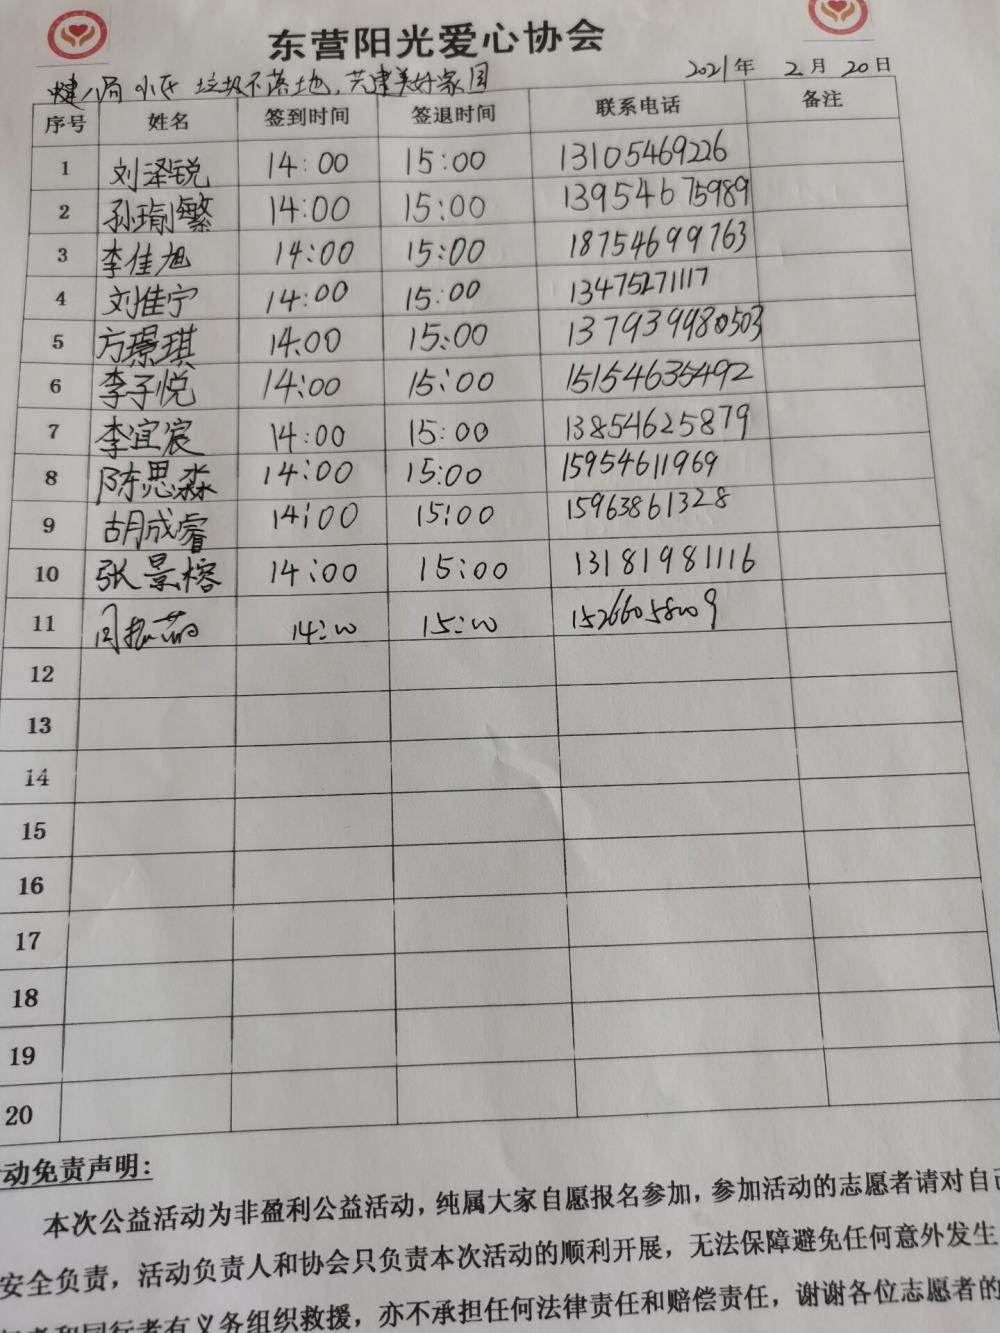 东营阳光爱心协会
小区 垃圾不落地，共建美好家园 2021年 2月 20日
序号 姓名 签到时间 签退时间 联系电话 备注
1 刘泽锐 14:00 15:00 13105469226
2 孙瑜繁 14:00 15:00 13954675989
3 李佳旭 14:00 15:00 18754699763
4 刘佳宁 14:00 15:00 13475271117
5 方璟琪 14:00 15:00
6 李子悦 14:00 15:00 15154635492
7 李宜宸 14:00 15:00 13854625879
8 陈思淼 14:00 15:00 15954611969
9 胡成睿 14:00 15:00 15963861328
10 张景榕 14:00 15:00 13181981116
11 14:00 15:00
12
13
14
15
16
17
18
19
20
动免责声明:
本次公益活动为非盈利公益活动，纯属大家自愿报名参加，参加活动的志愿者请对自己
安全负责，活动负责人和协会只负责本次活动的顺利开展，无法保障避免任何意外发生
和同行者有义务组织救援，亦不承担任何法律责任和赔偿责任，谢谢各位志愿者的